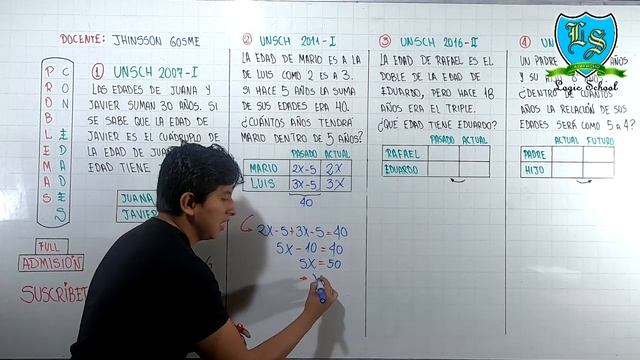 DOCENTE: JHINSSON GOSME
PROBLEMAS
CON
EDADES
FULL
ADMISIÓN
SUSCRIBET
① UNSCH 2007-I
LAS EDADES DE JUANA Y
JAVIER SUMAN 30 AÑOS. SI
SE SABE QUE LA EDAD DE
JAVIER ES EL CUÁDRUPLO DE
LA EDAD DE
EDAD TIENE
JUANA
JAVIER
② UNSCH 2011-I
LA EDAD DE MARIO ES A LA
DE LUIS COMO 2 ES A 3.
SI HACE 5 AÑOS LA SUMA
DE SUS EDADES ERA 40.
¿CUÁNTOS AÑOS TENDRÁ
MARIO DENTRO DE 5 AÑOS?
PASADO ACTUAL
MARIO 2X-5 2X
LUIS 3X-5 3X
40
2X-5+3X-5=40
5X-10=40
5X=50
③ UNSCH 2016-II
LA EDAD DE RAFAEL ES EL
DOBLE DE LA EDAD DE
EDUARDO, PERO HACE 18
AÑOS ERA EL TRIPLE.
¿QUÉ EDAD TIENE EDUARDO?
PASADO ACTUAL
RAFAEL
EDUARDO
④ UN
UN PADRE AÑOS
Y SU
¿DENTRO DE CUÁNTOS
AÑOS LA RELACIÓN DE SUS
EDADES SERÁ COMO 5 a 4?
ACTUAL FUTURO
PADRE
HIJO
LS
Logic School